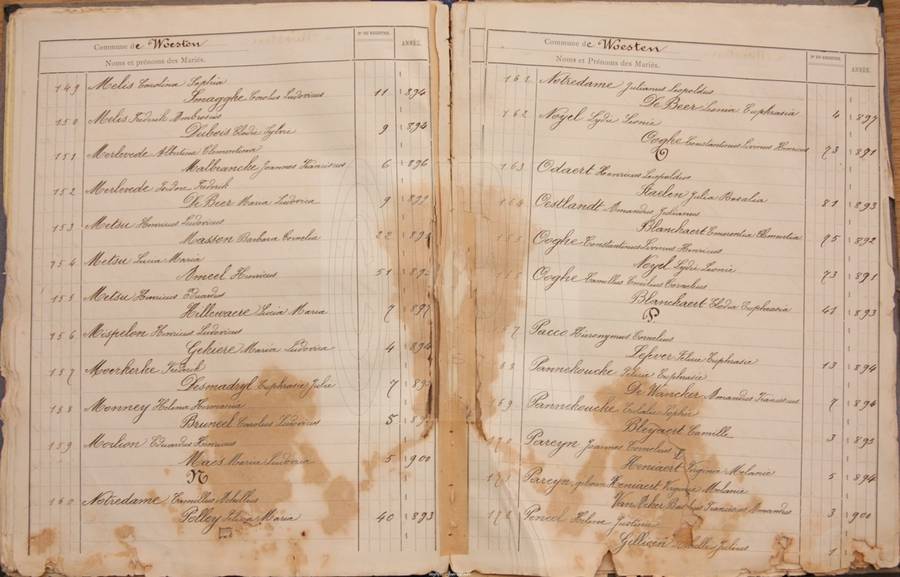 Commune de Woesten
Nos DU REGISTRE.
ANNÉE.
Noms et prénoms des Mariés.
149 Melis Carolina Sophia
Smagghe Carolus Ludovicus 11 1894
150 Melis Fredrik Ambrosius
Dubois Elodie Sylvie 9 1894
151 Merlevede Albertina Clementina
Malbrancke Joannes Franciscus 6 1896
152 Merlevede Isidoor Frederik
De Beer Maria Ludovica 9 1899
153 Metsu Henricus Ludovicus
Masson Barbara Cornelia 22 189
154 Metsu Lucia Maria
Ameel Henricus 51 189
155 Metsu Henricus Eduardus
Hillewaere Lucia Maria 7 1897
156 Mispelon Henricus Ludovicus
Gekiere Maria Ludovica 4 1894
157 Moerkerke Fredrik
Desmadryl Euphrasie Julie 7 189
158 Monney Helena Hermania
Bruneel Carolus Ludovicus 5 189
159 Morlion Eduardus Henricus
Maes Maria Ludovica 5 1900
N
160 Notredame Camillus Achillius
Polley Maria 40 1893
Commune de Woesten
Nos DU REGISTRE.
ANNÉE.
Noms et Prénoms des Mariés.
161 Notredame Julianus Leopoldus
De Beer Leonia Euphrasia 4 1897
162 Noyel Lydie Leonie
Cooghe Constantinus Livinus Henricus 73 1891
O
163 Odaert Henricus Leopoldus
Staelen Julia Rosalia 81 1893
164 Oostlandt Amandus Julianus
Blanckaert Emerentia Clementia 75 1892
155 Ooghe Constantinus Livinus Henricus
Noyel Lydie Leonie 73 1891
Ooghe Camillus Cornelius
Blanckaert Elodia Euphrasia 41 1893
P
7 Pacco Hieronymus Cornelius
Lefever Felicie Euphrasie 13 1894
Pannekoucke Felicie Euphrasie
De Wancker Amandus Franciscus 7 1894
169 Pannekoucke Eulalie Sophie
Bleyaert Camille 3 1895
170 Pareyn Joannes Cornelius
Heniaert Virginie Melanie 5 1894
171 Pareyn geboren Heniaert Virginie Melanie
Franciscus Amandus 3 1900
172 Justinie
Gillioen Julius 1